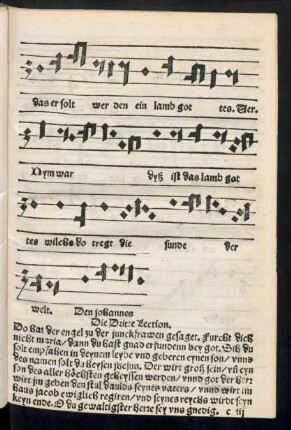 das er solt wer den ein lamb got tes. Ver.
Nym war dyß ist das lamb got
tes wilchs do tregt die sunde der
welt. Den johannes
Die Dirtte Lection.
Do hat der engel zu der junckfrawen gesaget. Furcht dich
nicht maria/ dann du hast gnad erfundenn bey got. Sih du
solt empfahen in deynem leybe vnd geberen eynen son/ vnnd
des namen solt du heysen jhesus. Der wirt groß sein/ vn eyn
son des aller höchsten geheyssen werden/ vnnd got der herr
wirt jm geben den stul dauids seynes vaters/ vnnd wirt im
haus jacob ewiglich regiren/ vnd seynes reychs wirdt seyn
keyn ende. O du gewaltigster herre sey vns gnedig. c iij